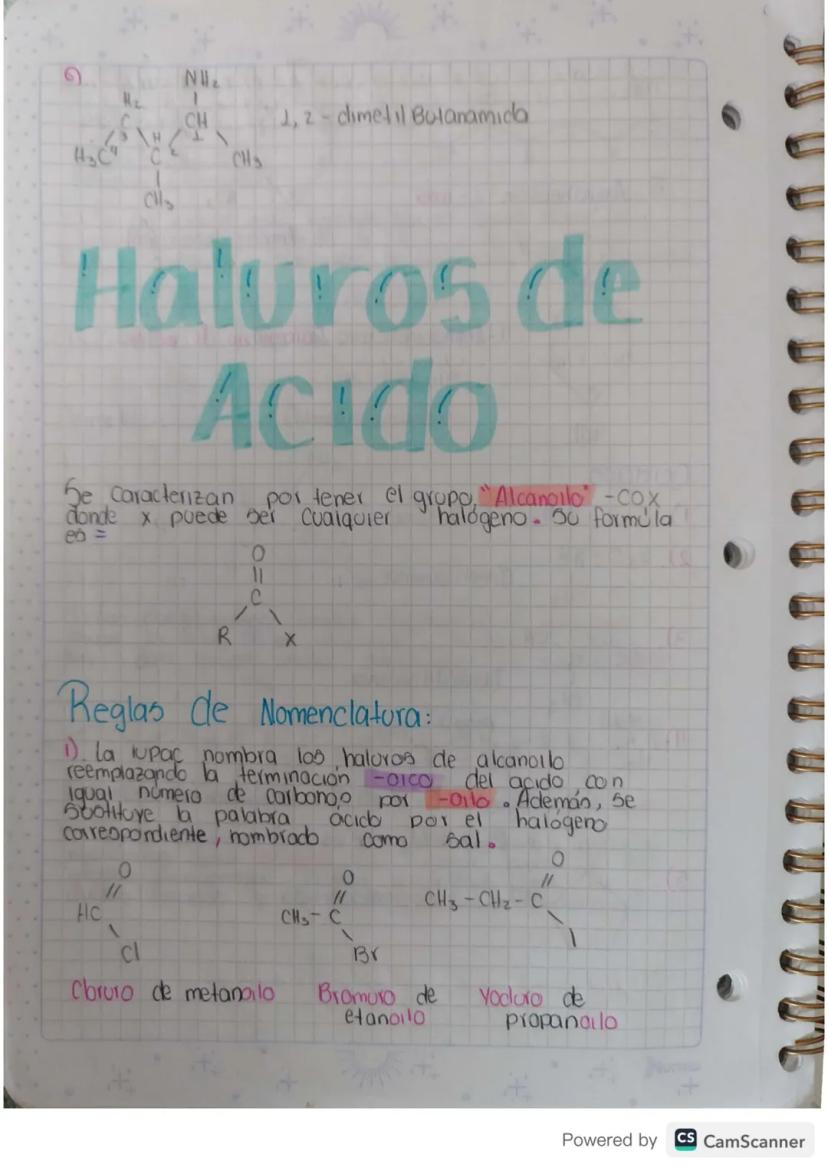 6)
NH₂
H₂
C CH 1,2-dimetil Butanamida
3 H 1
H₃C 4 C 2 CH₃
CH₃
Haluros de
Acido
Se caracterizan por tener el grupo "Alcanoilo" -COX
donde x puede ser cualquier halógeno. Su formula
es =
O
||
C
R X
Reglas de Nomenclatura:
1) La iupac nombra los haluros de alcanoilo
reemplazando la terminación -oico del acido con
igual número de carbonos por -oilo. Además, se
sustituye la palabra ácido por el halógeno
correspondiente, nombrado como sal.
O O O
HC CH₃-C CH₃-CH₂-C
Cl Br I
Cloruro de metanoilo Bromuro de Yoduro de
etanoilo propanoilo
Powered by CS CamScanner